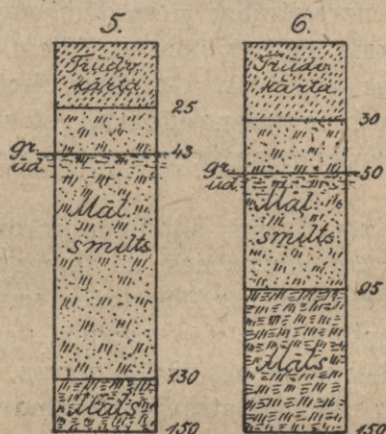 5.
Trūdv.
kārta
25
gr.
ūd.
43
Māl.
smilts
130
Māls
150
6.
Trūdv.
kārta
30
gr.
ūd.
50
Māl.
smilts
95
Māls
150